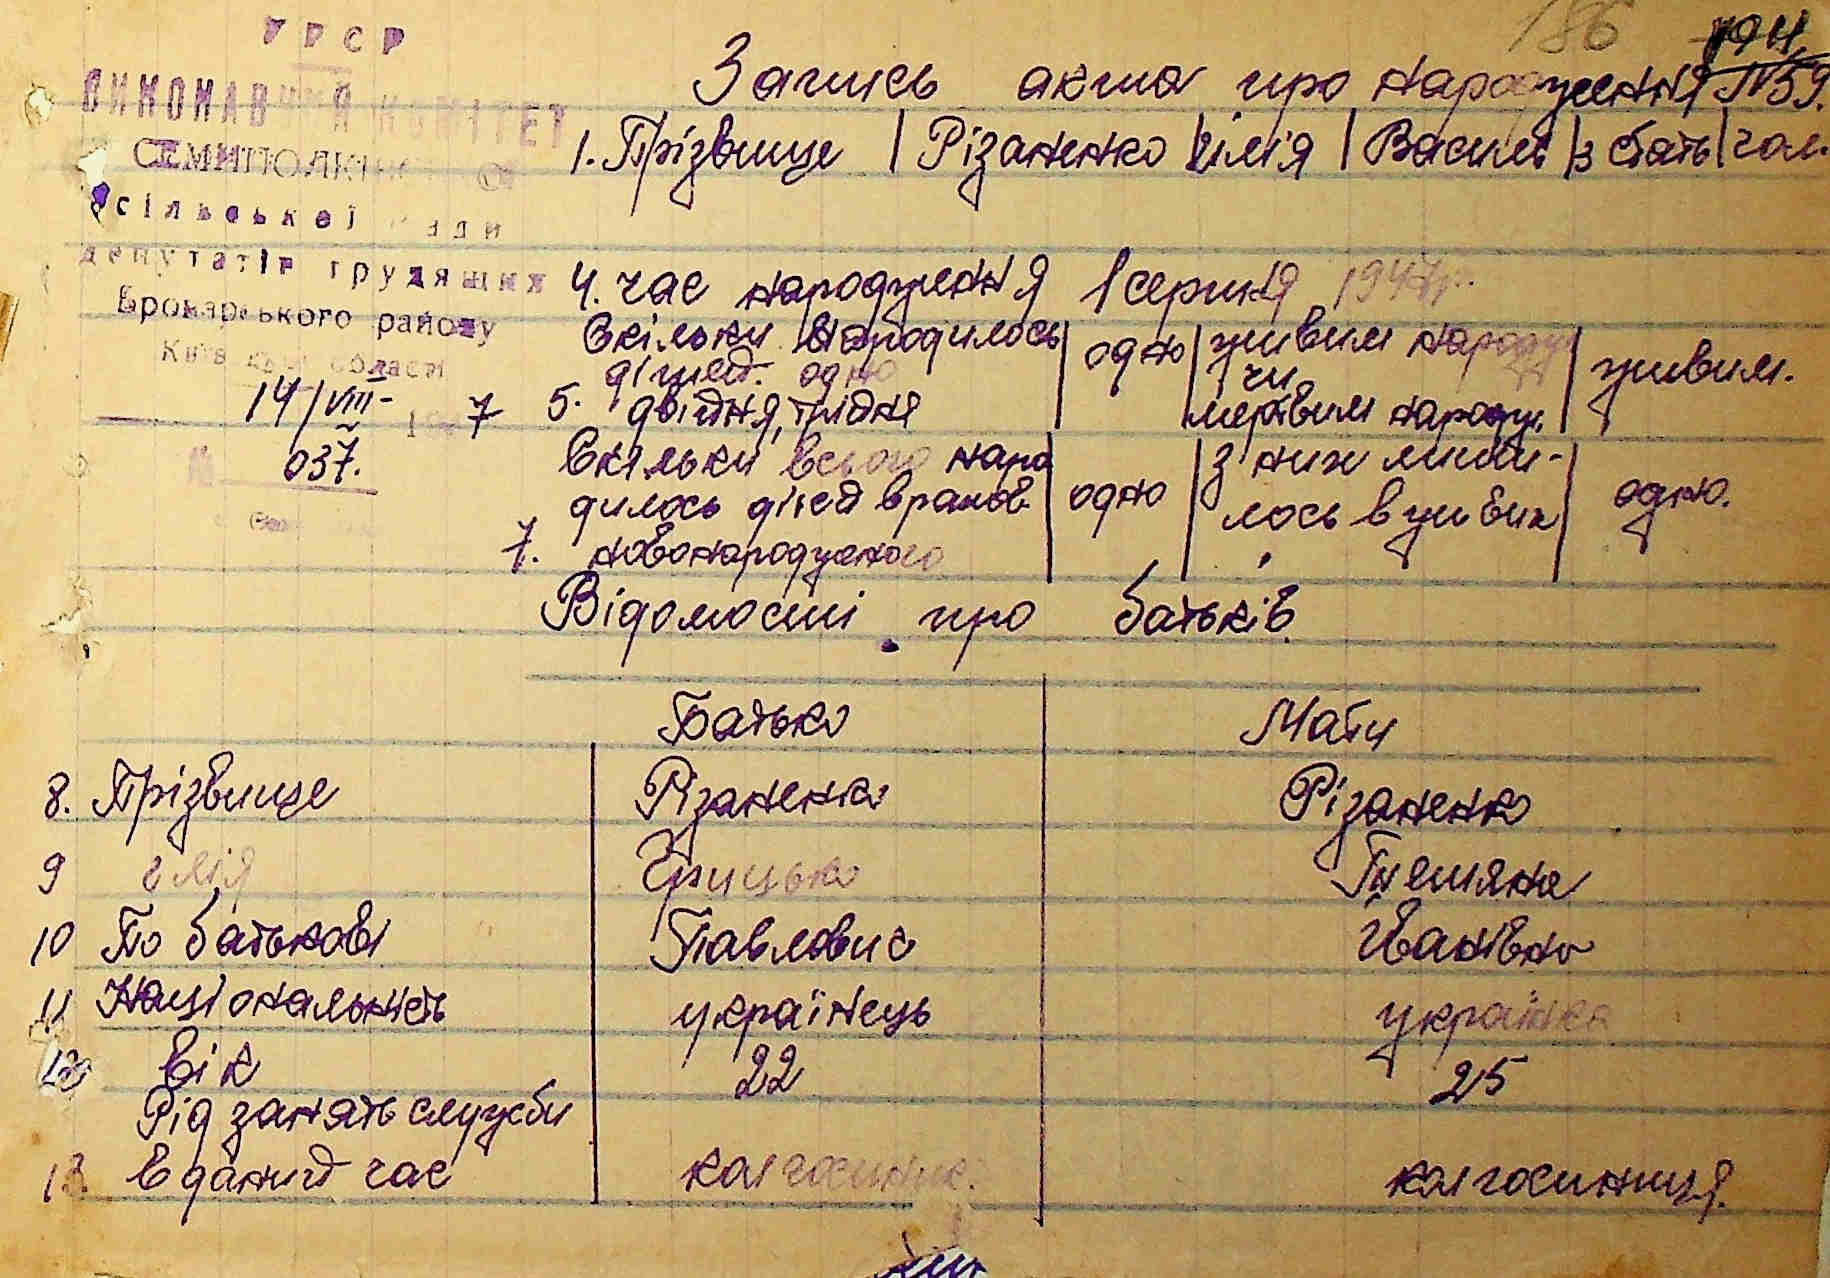 186
УРСР
ВИКОНАВЧИЙ КОМІТЕТ
СЕМИПОЛКІВСЬКОЇ
сільської ради
депутатів трудящих
Броварського району
Київської області
14/VIII- 1947
№ 037.
Запись акта про народження №59.
1. Прізвище | Різаненко | 2 імія | Василь | 3 стать | чол.
4. час народження 1 серпня 1947р.
Скільки народилось | одно | живим народж | живим.
дітей. одно чи
5. двійня, трійня мертвим народж.
Скільки всього наро | одно | з них лиши- | одно.
дилось дітей врахов лось в живих
7. новонародженого
Відомості про батьків
Батько Мати
8. Прізвище Різаненко Різаненко
9 імія Грицько Тетяна
10 По батькові Павлович Іванівна
11 Національність українець українка
12 вік 22 25
Рід занять служби
13. в даний час колгоспник. колгоспниця.